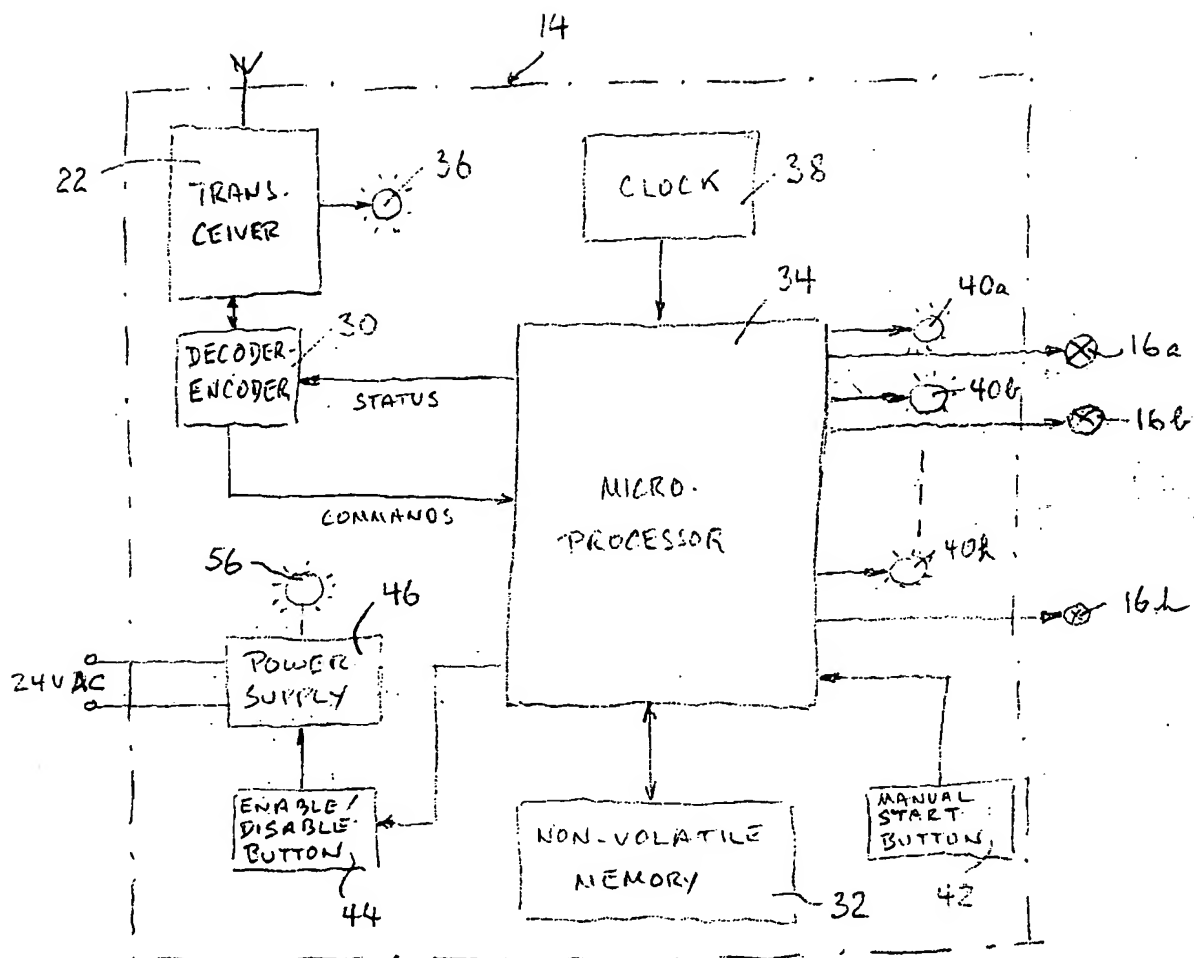 14
22
TRANS-
CEIVER
36
CLOCK
38
DECODER-
ENCODER
30
STATUS
COMMANDS
34
MICRO-
PROCESSOR
40a
16a
40b
16b
40h
16h
56
46
POWER
SUPPLY
24VAC
ENABLE/
DISABLE
BUTTON
44
NON-VOLATILE
MEMORY
32
MANUAL
START
BUTTON
42